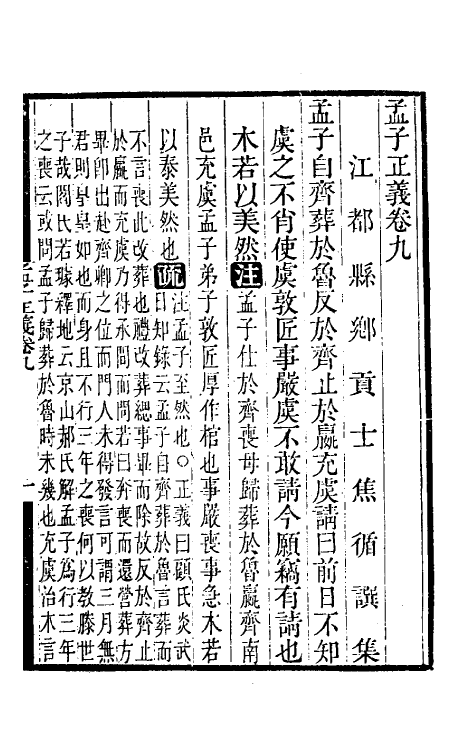 孟子正義卷九
江都縣鄉貢士焦循譔集
孟子自齊葬於魯反於齊止於嬴充虞請曰前日不知
虞之不肖使虞敦匠事嚴虞不敢請今願竊有請也
木若以美然注孟子仕於齊喪母歸葬於魯嬴齊南
邑充虞孟子弟子敦匠厚作棺也事嚴喪事急木若
以泰美然也疏注孟子至然也○正義曰顧氏炎武
日知錄云孟子自齊葬於魯言葬而
不言喪此改葬也禮改葬緦事畢而除故反於齊止
於嬴而充虞乃得承間而問若曰奔喪而還營葬方
畢即出赴齊卿之位而門人未得發言可謂三月無
君則皇皇如也而身且不行三年之喪何以教滕世
子哉閻氏若璩釋地云京山郝氏解孟子為行三年
之喪云或問孟子歸葬於魯時未幾也充虞治木言
孟子正義卷九
一